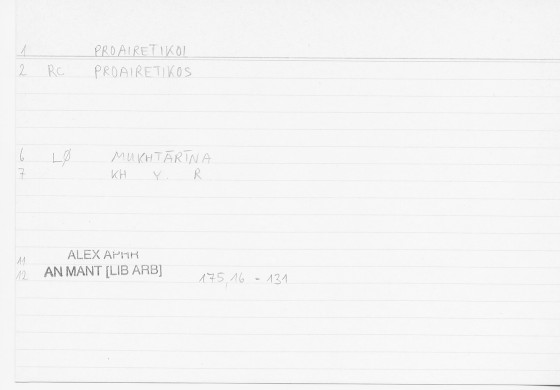 1 PROAIRETIKOI
2 RC PROAIRETIKOS
6 LØ MUKHTĀRĪNA
7 KH Y. R
11 ALEX APHR
12 AN MANT [LIB ARB] 175,16 - 131